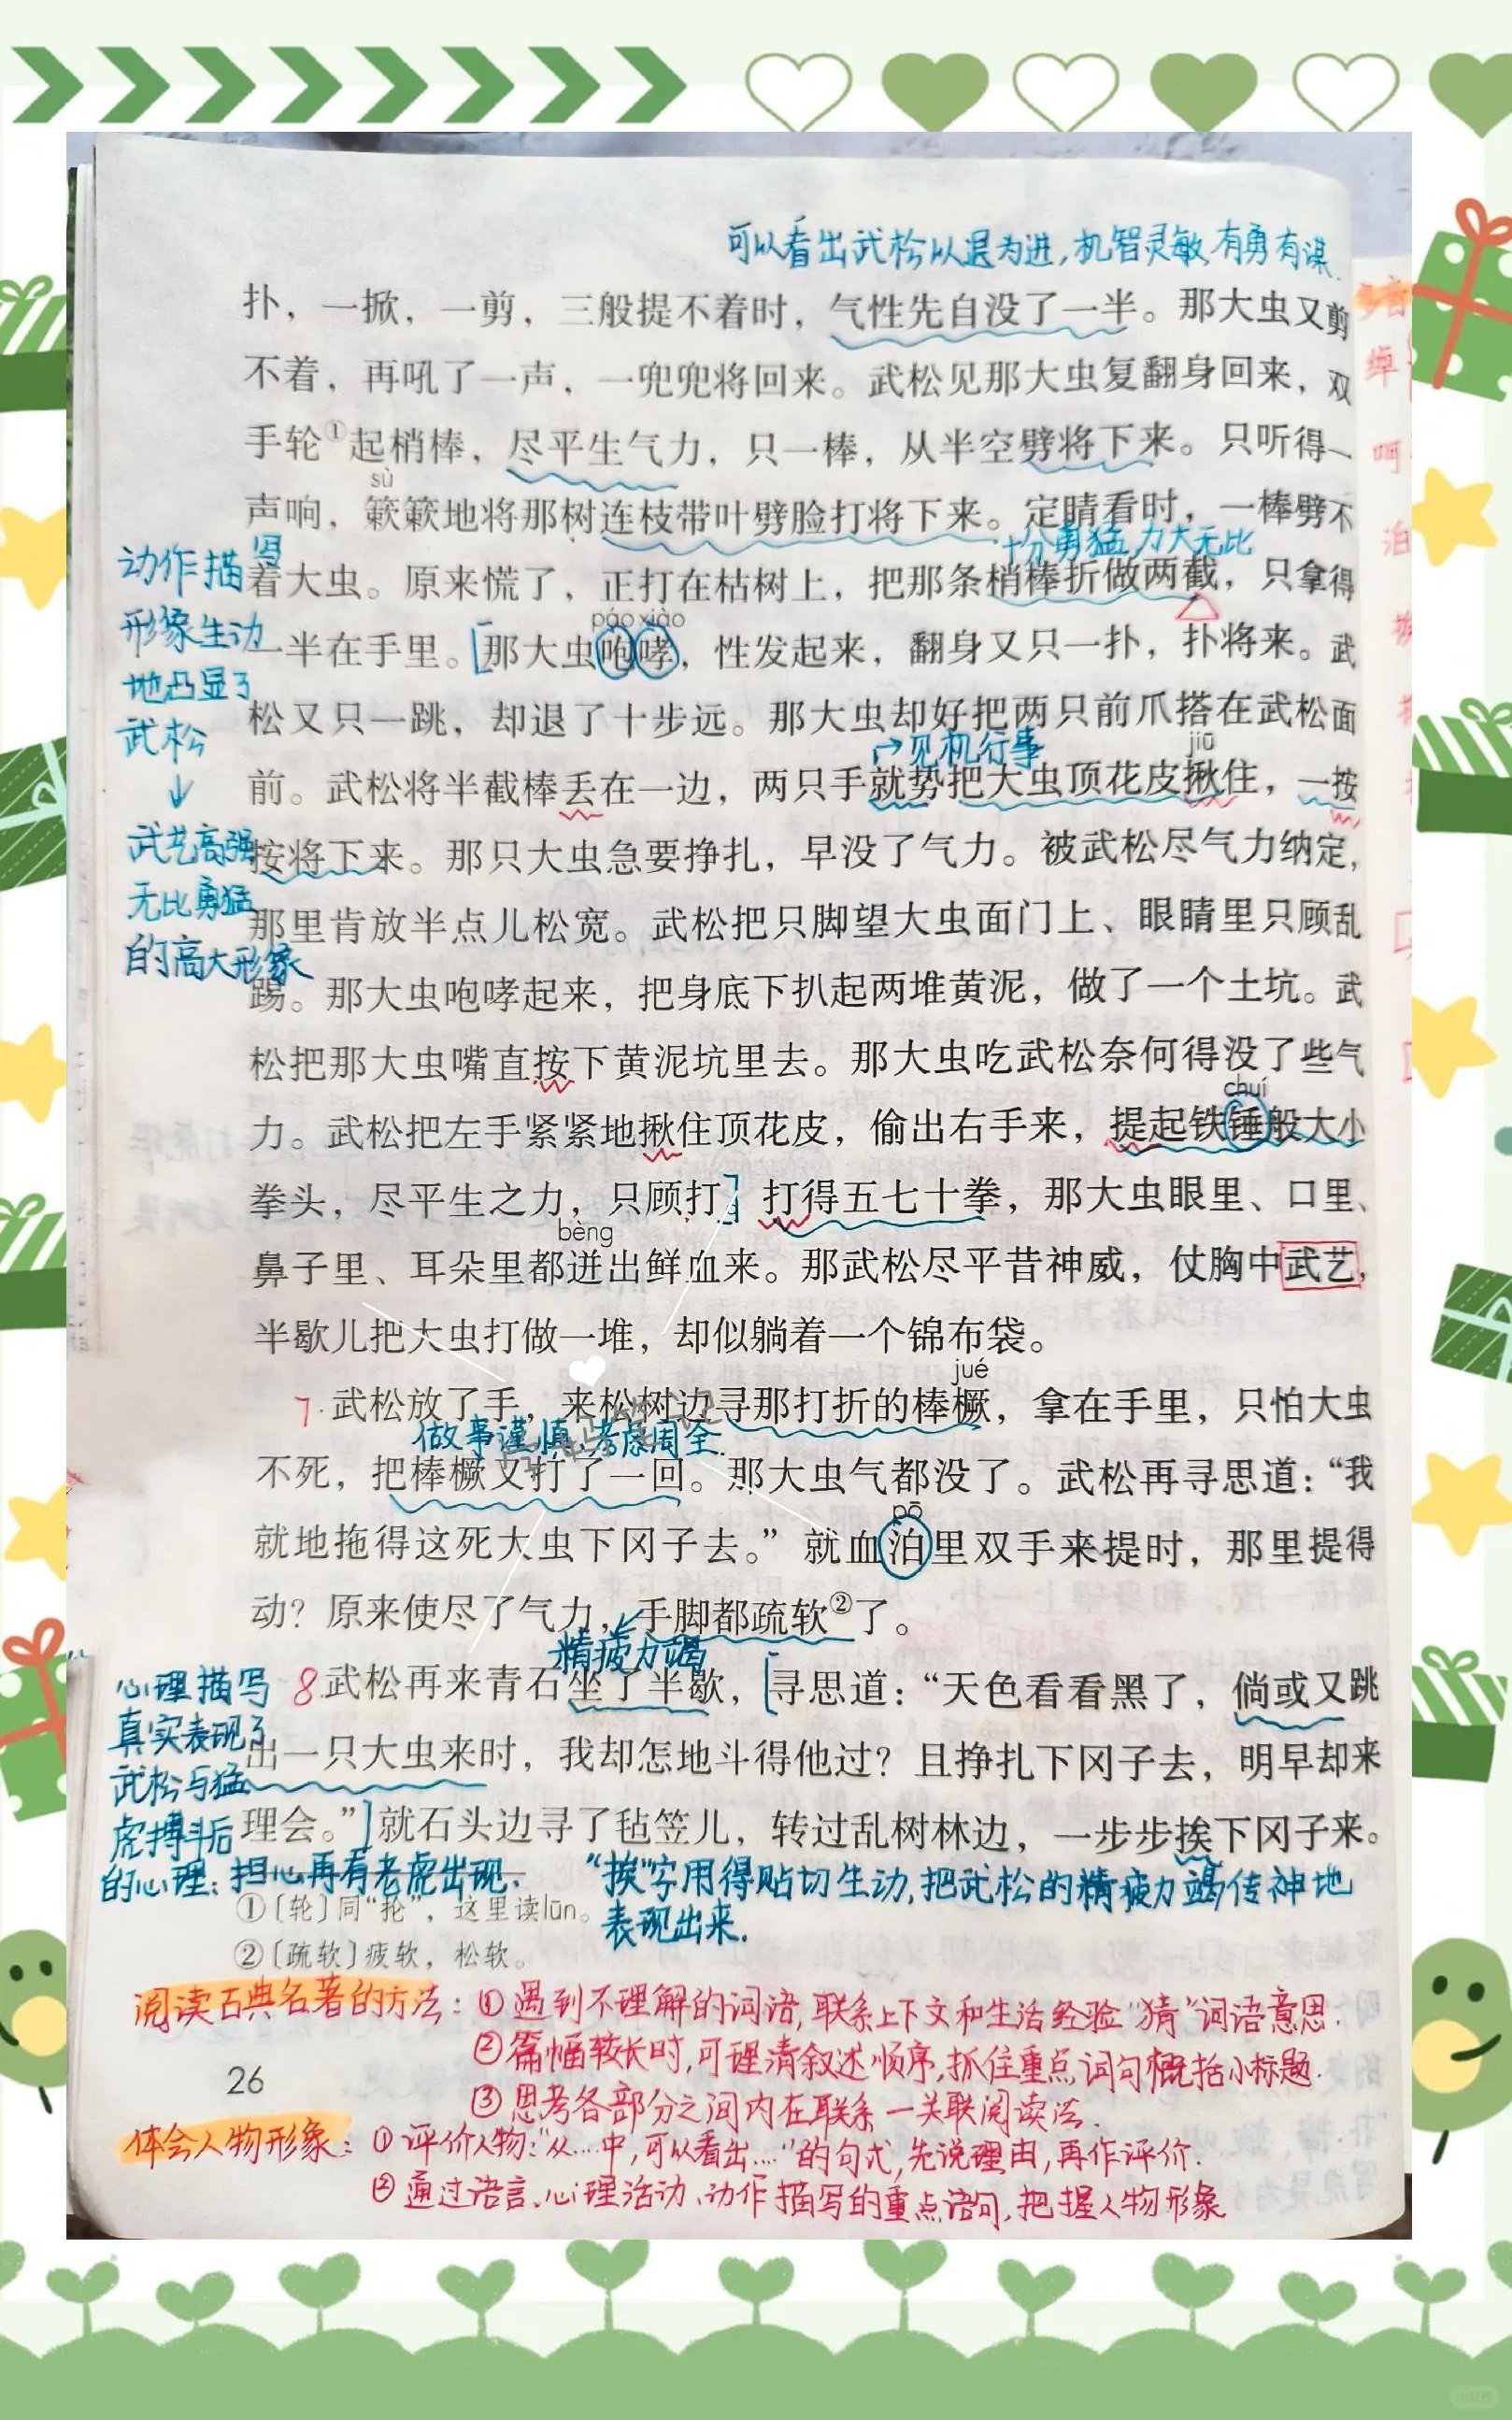 可以看出武松以退为进,机智灵敏,有勇有谋.
扑，一掀，一剪，三般提不着时，气性先自没了一半。那大虫又剪
不着，再吼了一声，一兜兜将回来。武松见那大虫复翻身回来，双
手轮①起梢棒，尽平生气力，只一棒，从半空劈将下来。只听得一
sù
声响，簌簌地将那树连枝带叶劈脸打将下来。定睛看时，一棒劈不
十分勇猛,力大无比
着大虫。原来慌了，正打在枯树上，把那条梢棒折做两截，只拿得
páo xiào
一半在手里。[那大虫咆哮，性发起来，翻身又只一扑，扑将来。武
松又只一跳，却退了十步远。那大虫却好把两只前爪搭在武松面
见机行事
jiū
前。武松将半截棒丢在一边，两只手就势把大虫顶花皮揪住，一按
按将下来。那只大虫急要挣扎，早没了气力。被武松尽气力纳定，
那里肯放半点儿松宽。武松把只脚望大虫面门上、眼睛里只顾乱
踢。那大虫咆哮起来，把身底下扒起两堆黄泥，做了一个土坑。武
松把那大虫嘴直按下黄泥坑里去。那大虫吃武松奈何得没了些气
chuí
力。武松把左手紧紧地揪住顶花皮，偷出右手来，提起铁锤般大小
拳头，尽平生之力，只顾打] 打得五七十拳，那大虫眼里、口里、
bèng
鼻子里、耳朵里都迸出鲜血来。那武松尽平昔神威，仗胸中武艺，
半歇儿把大虫打做一堆，却似躺着一个锦布袋。
动作描写
形象生动
地凸显了
武松
↓
武艺高强
无比勇猛
的高大形象
jué
7.武松放了手，来松树边寻那打折的棒橛，拿在手里，只怕大虫
做事谨慎,考虑周全.
不死，把棒橛又打了一回。那大虫气都没了。武松再寻思道：“我
pō
就地拖得这死大虫下冈子去。”就血泊里双手来提时，那里提得
动？原来使尽了气力，手脚都疏软②了。
精疲力竭
8武松再来青石坐了半歇，[寻思道：“天色看看黑了，倘或又跳
出一只大虫来时，我却怎地斗得他过？且挣扎下冈子去，明早却来
理会。”]就石头边寻了毡笠儿，转过乱树林边，一步步挨下冈子来。
心理描写
真实表现了
武松与猛
虎搏斗后
的心理：担心再有老虎出现.
“挨”字用得贴切生动,把武松的精疲力竭传神地
表现出来.
①〔轮〕同“抡”，这里读lūn。
②〔疏软〕疲软，松软。
阅读古典名著的方法：①遇到不理解的词语,联系上下文和生活经验“猜”词语意思.
②篇幅较长时,可理清叙述顺序,抓住重点词句概括小标题.
③思考各部分之间内在联系一关联阅读法.
26
体会人物形象：①评价人物:“从…中,可以看出…”的句式,先说理由,再作评价.
②通过语言、心理活动、动作描写的重点语句,把握人物形象
绰
呵
泊